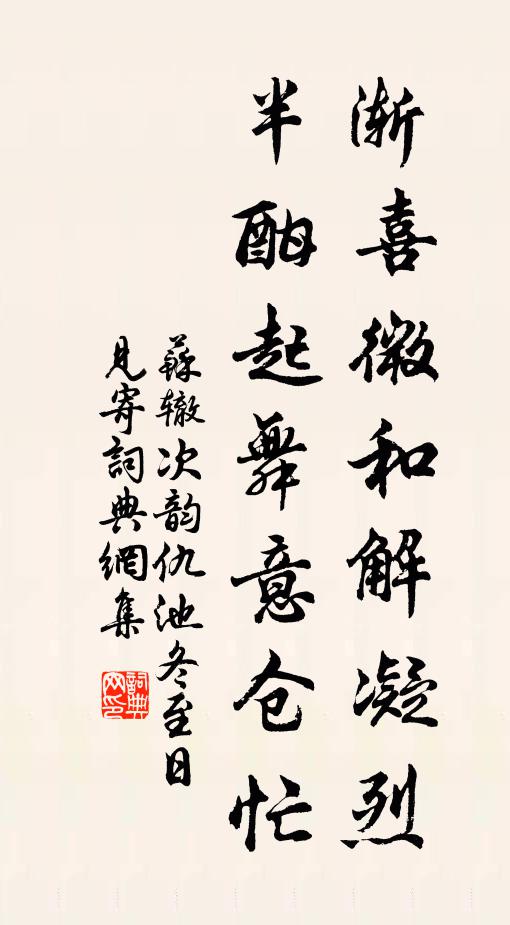 渐喜微和解凝烈
半酣起舞意仓忙
蘇辙次韵仇池冬至日
見寄詞典網集
詞典
网印